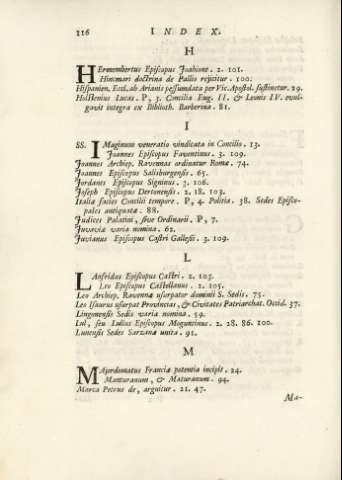 116 INDEX.
H
HErmembertus Episcopus Joabione. 2. 101.
Hincmari doctrina de Pallio rejicitur. 100.
Hispanien. Eccl. ab Arianis pessumdata per Vic. Apostol. sustinetur. 29.
Holstenius Lucas. P, 3. Concilia Eug. II. & Leonis IV. evul-
gavit integra ex Biblioth. Barberina. 81.
I
SS. IMaginum veneratio vindicata in Conciliis. 13.
Joannes Episcopus Faventinus. 3. 109.
Joannes Archiep. Ravennas ordinatur Romæ. 74.
Joannes Episcopus Salisburgensis. 65.
Jordanes Episcopus Signinus. 3. 106.
Joseph Episcopus Dertonensis. 2. 18. 103.
Italia socios Concilii tempore. P, 4. Politia. 38. Sedes Episco-
pales antiquatæ. 88.
Judices Palatini, seu Ordinarii. P, 7.
Juvaviæ varia nomina. 62.
Juvianus Episcopus Castri Gallesii. 3. 109.
L
LAnfridus Episcopus Castri. 2. 103.
Leo Episcopus Castellanus. 2. 105.
Leo Archiep. Ravennæ usurpator dominii S. Sedis. 75.
Leo Isaurus usurpat Provincias, & Civitates Patriarchat. Occid. 37.
Lingonensis Sedis varia nomina. 59.
Lul, seu Lullus Episcopus Moguntinus. 2. 28. 86. 100.
Lunensis Sedes Sarzanæ unita. 91.
M
MAjordomatus Franciæ potentia incipit. 24.
Manturanum, & Maturanum. 94.
Marca Petrus de, arguitur. 21. 47.
Ma-